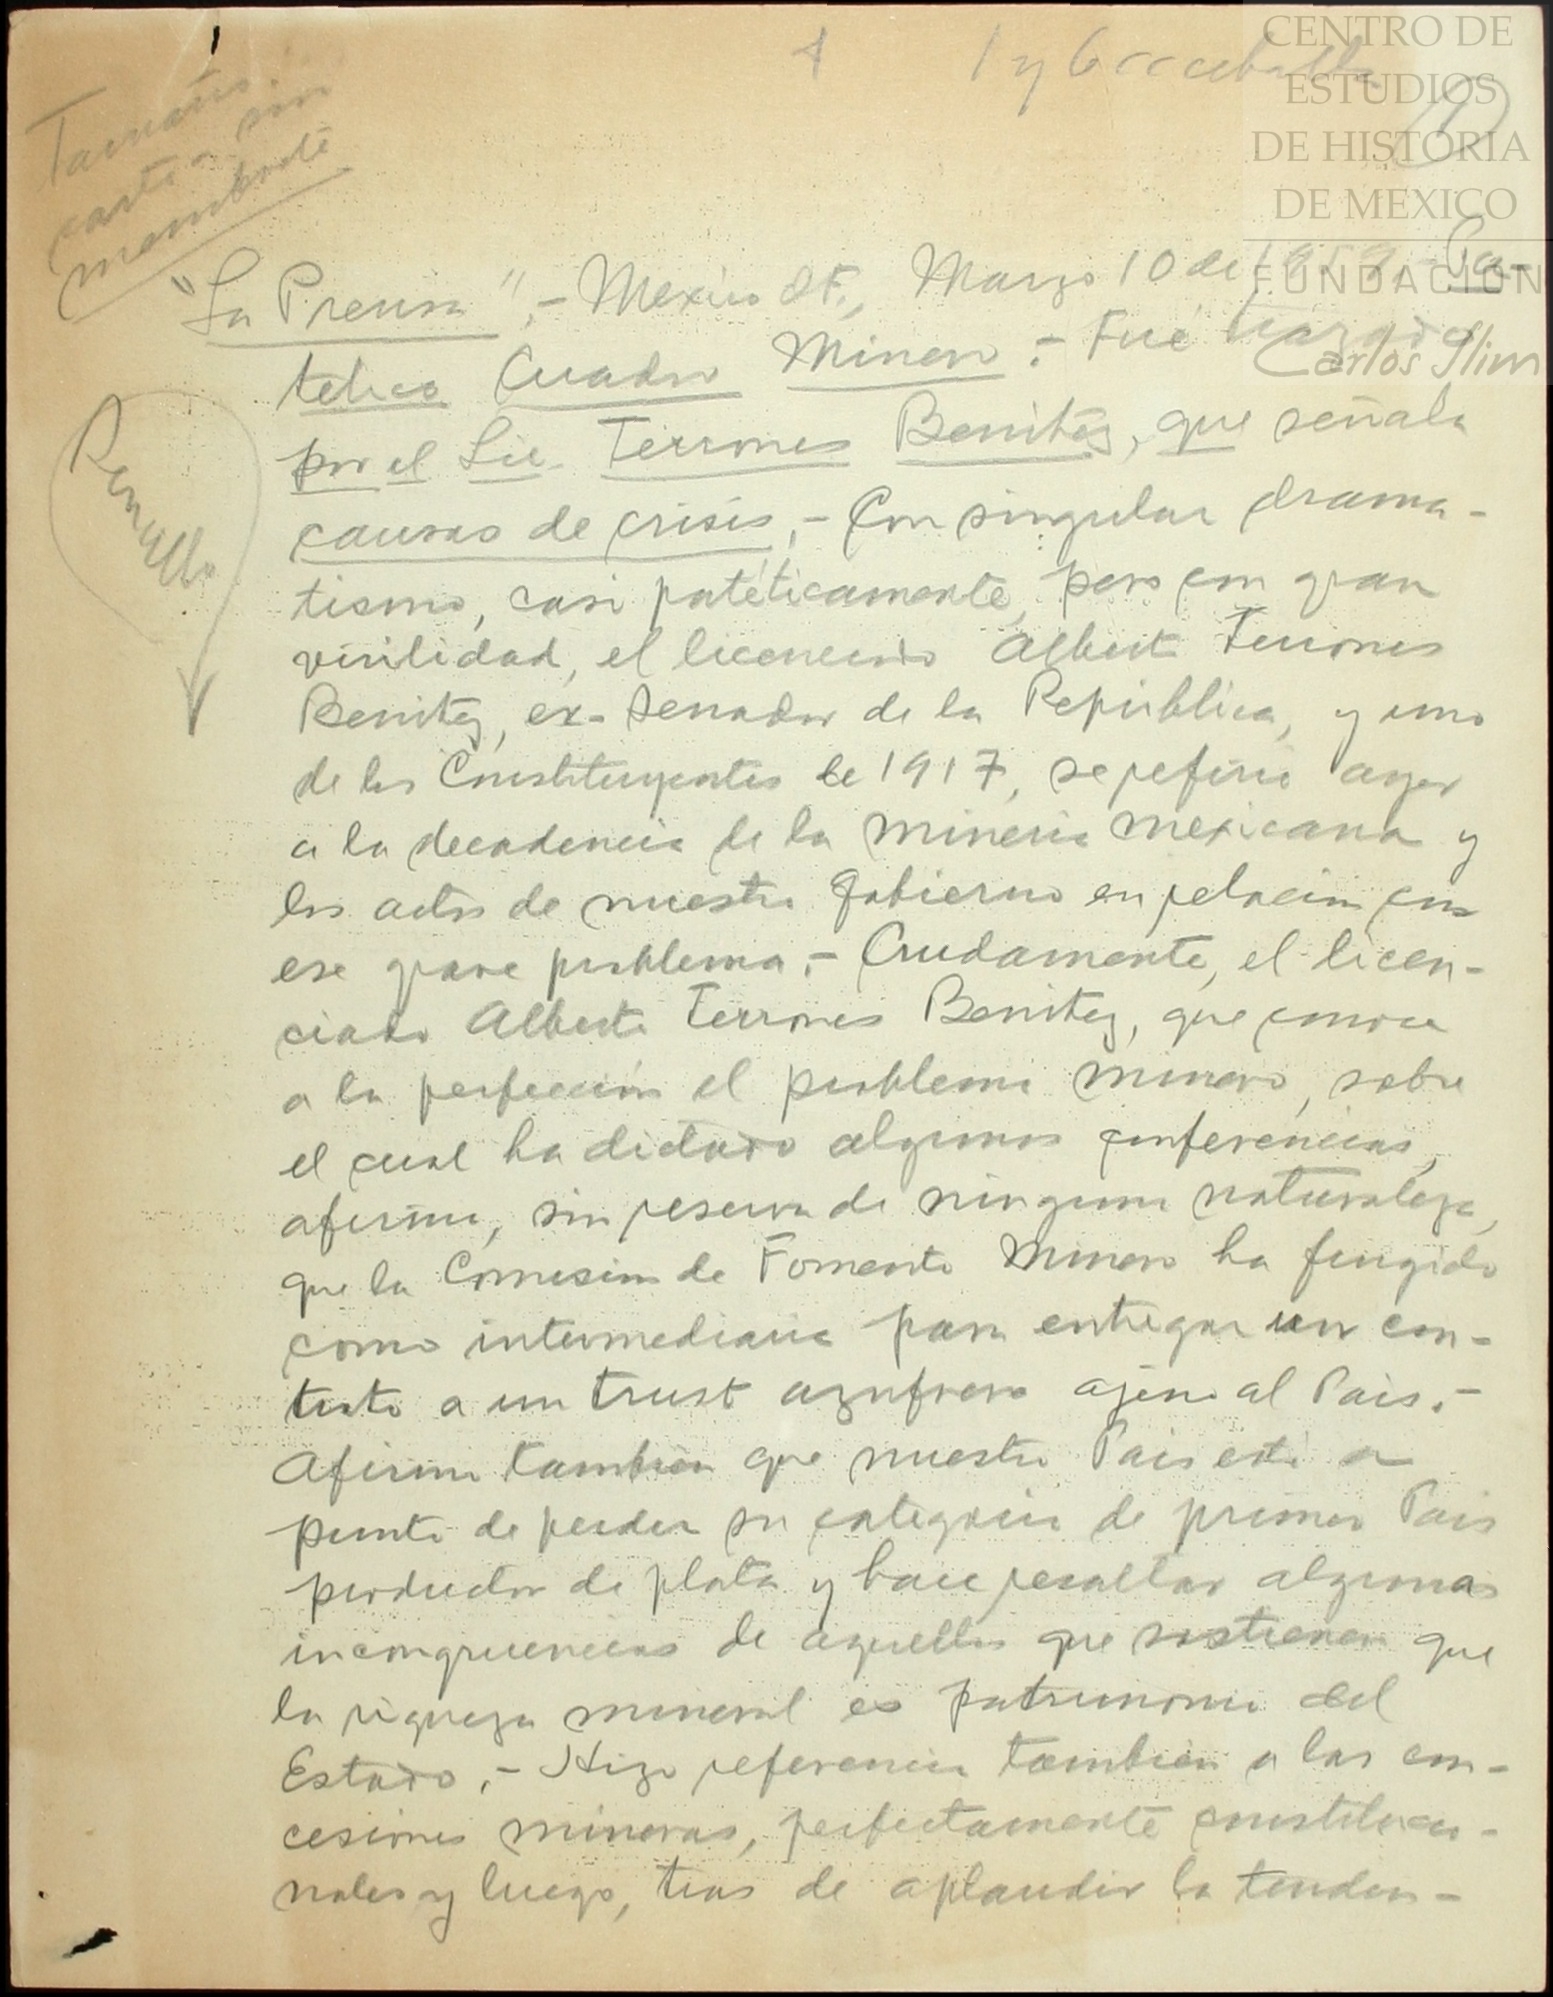 1 y 6
(1)
Tamaño
carta sin
membrete
CENTRO DE
ESTUDIOS
DE HISTORIA
DE MEXICO
FUNDACIÓN
Carlos Slim
"La Prensa".- México D.F., Marzo 10 de 1959.- Pa-
tetico Cuadro Minero.- Fué trazado
por el Lic. Terrones Benitez, que señala
causas de crisis.- Con singular drama-
Renglón
tismo, casi patéticamente, pero con gran
virilidad, el licenciado Alberto Terrones
Benitez, ex-Senador de la República, y uno
de los Constituyentes de 1917, se refirió ayer
a la decadencia de la mineria mexicana y
los actos de nuestro Gobierno en relación con
ese grave problema.- Crudamente, el licen-
ciado Alberto Terrones Benitez, que conoce
a la perfección el problema minero, sobre
el cual ha dictado algunas conferencias,
afirma, sin reserva de ninguna naturaleza,
que la Comisión de Fomento Minero ha fungido
como intermediaria para entregar un con-
trato a un trust azufrero ajeno al Pais.-
Afirma tambien que nuestro Pais está a
punto de perder su categoria de primer Pais
productor de plata y hace resaltar algunas
incongruencias de aquellos que sostienen que
la riqueza mineral es patrimonio del
Estado.- Hizo referencia tambien a las con-
cesiones mineras, perfectamente constitucio-
nales y luego, tras de aplaudir la tenden-